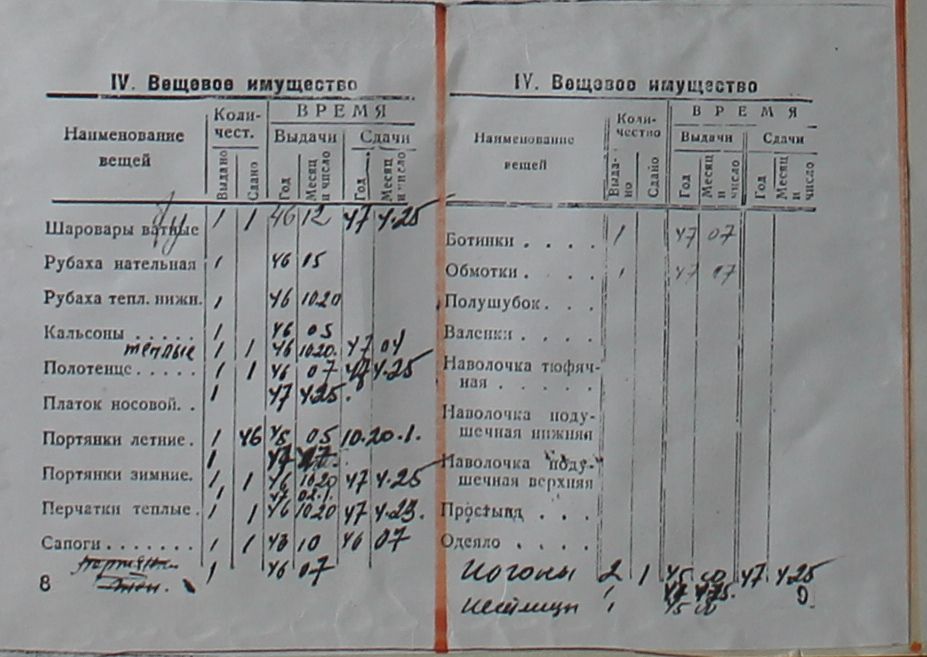 IV. Вещевое имущество
Наименование вещей
Коли-
чест.
ВРЕМЯ
Выдачи
Сдачи
Выдано
Сдано
Год
Месяц и число
Год
Месяц и число
Шаровары ватные 1 1 46 12 47 4.25
Рубаха нательная 1 46 05
Рубаха тепл. нижн. 1 46 10.20
Кальсоны . . . . . 1 46 05
теплые 1 1 46 10.20. 47 04
Полотенце . . . . . 1 1 46 07 47 4.25
1 47 4.25.
Платок носовой. .
Портянки летние . 1 46 45 05 10.20.1.
1 47
Портянки зимние. 1 1 46 10.20 47 4.25
1 47 02.1.
Перчатки теплые . 1 1 46 10.20 47 4.23.
Сапоги . . . . . . . 1 1 43 10 46 07
1 46 07
8
IV. Вещевое имущество
Наименование
вещей
Коли-
чество
ВРЕМЯ
Выдачи
Сдачи
Выда-
но
Сдано
Год
Месяц
и
число
Год
Месяц
и
число
Ботинки . . . . 1 47 07
Обмотки . . . . 1 47 07
Полушубок . . .
Валенки . . . .
Наволочка тюфяч-
ная . . . . .
Наволочка поду-
шечная нижняя
Наволочка поду-
шечная верхняя
Простынд . . .
Одеяло . . . .
Погоны 2 1 45 00 47 4.25
1 47 4.25.
1 45 00
9